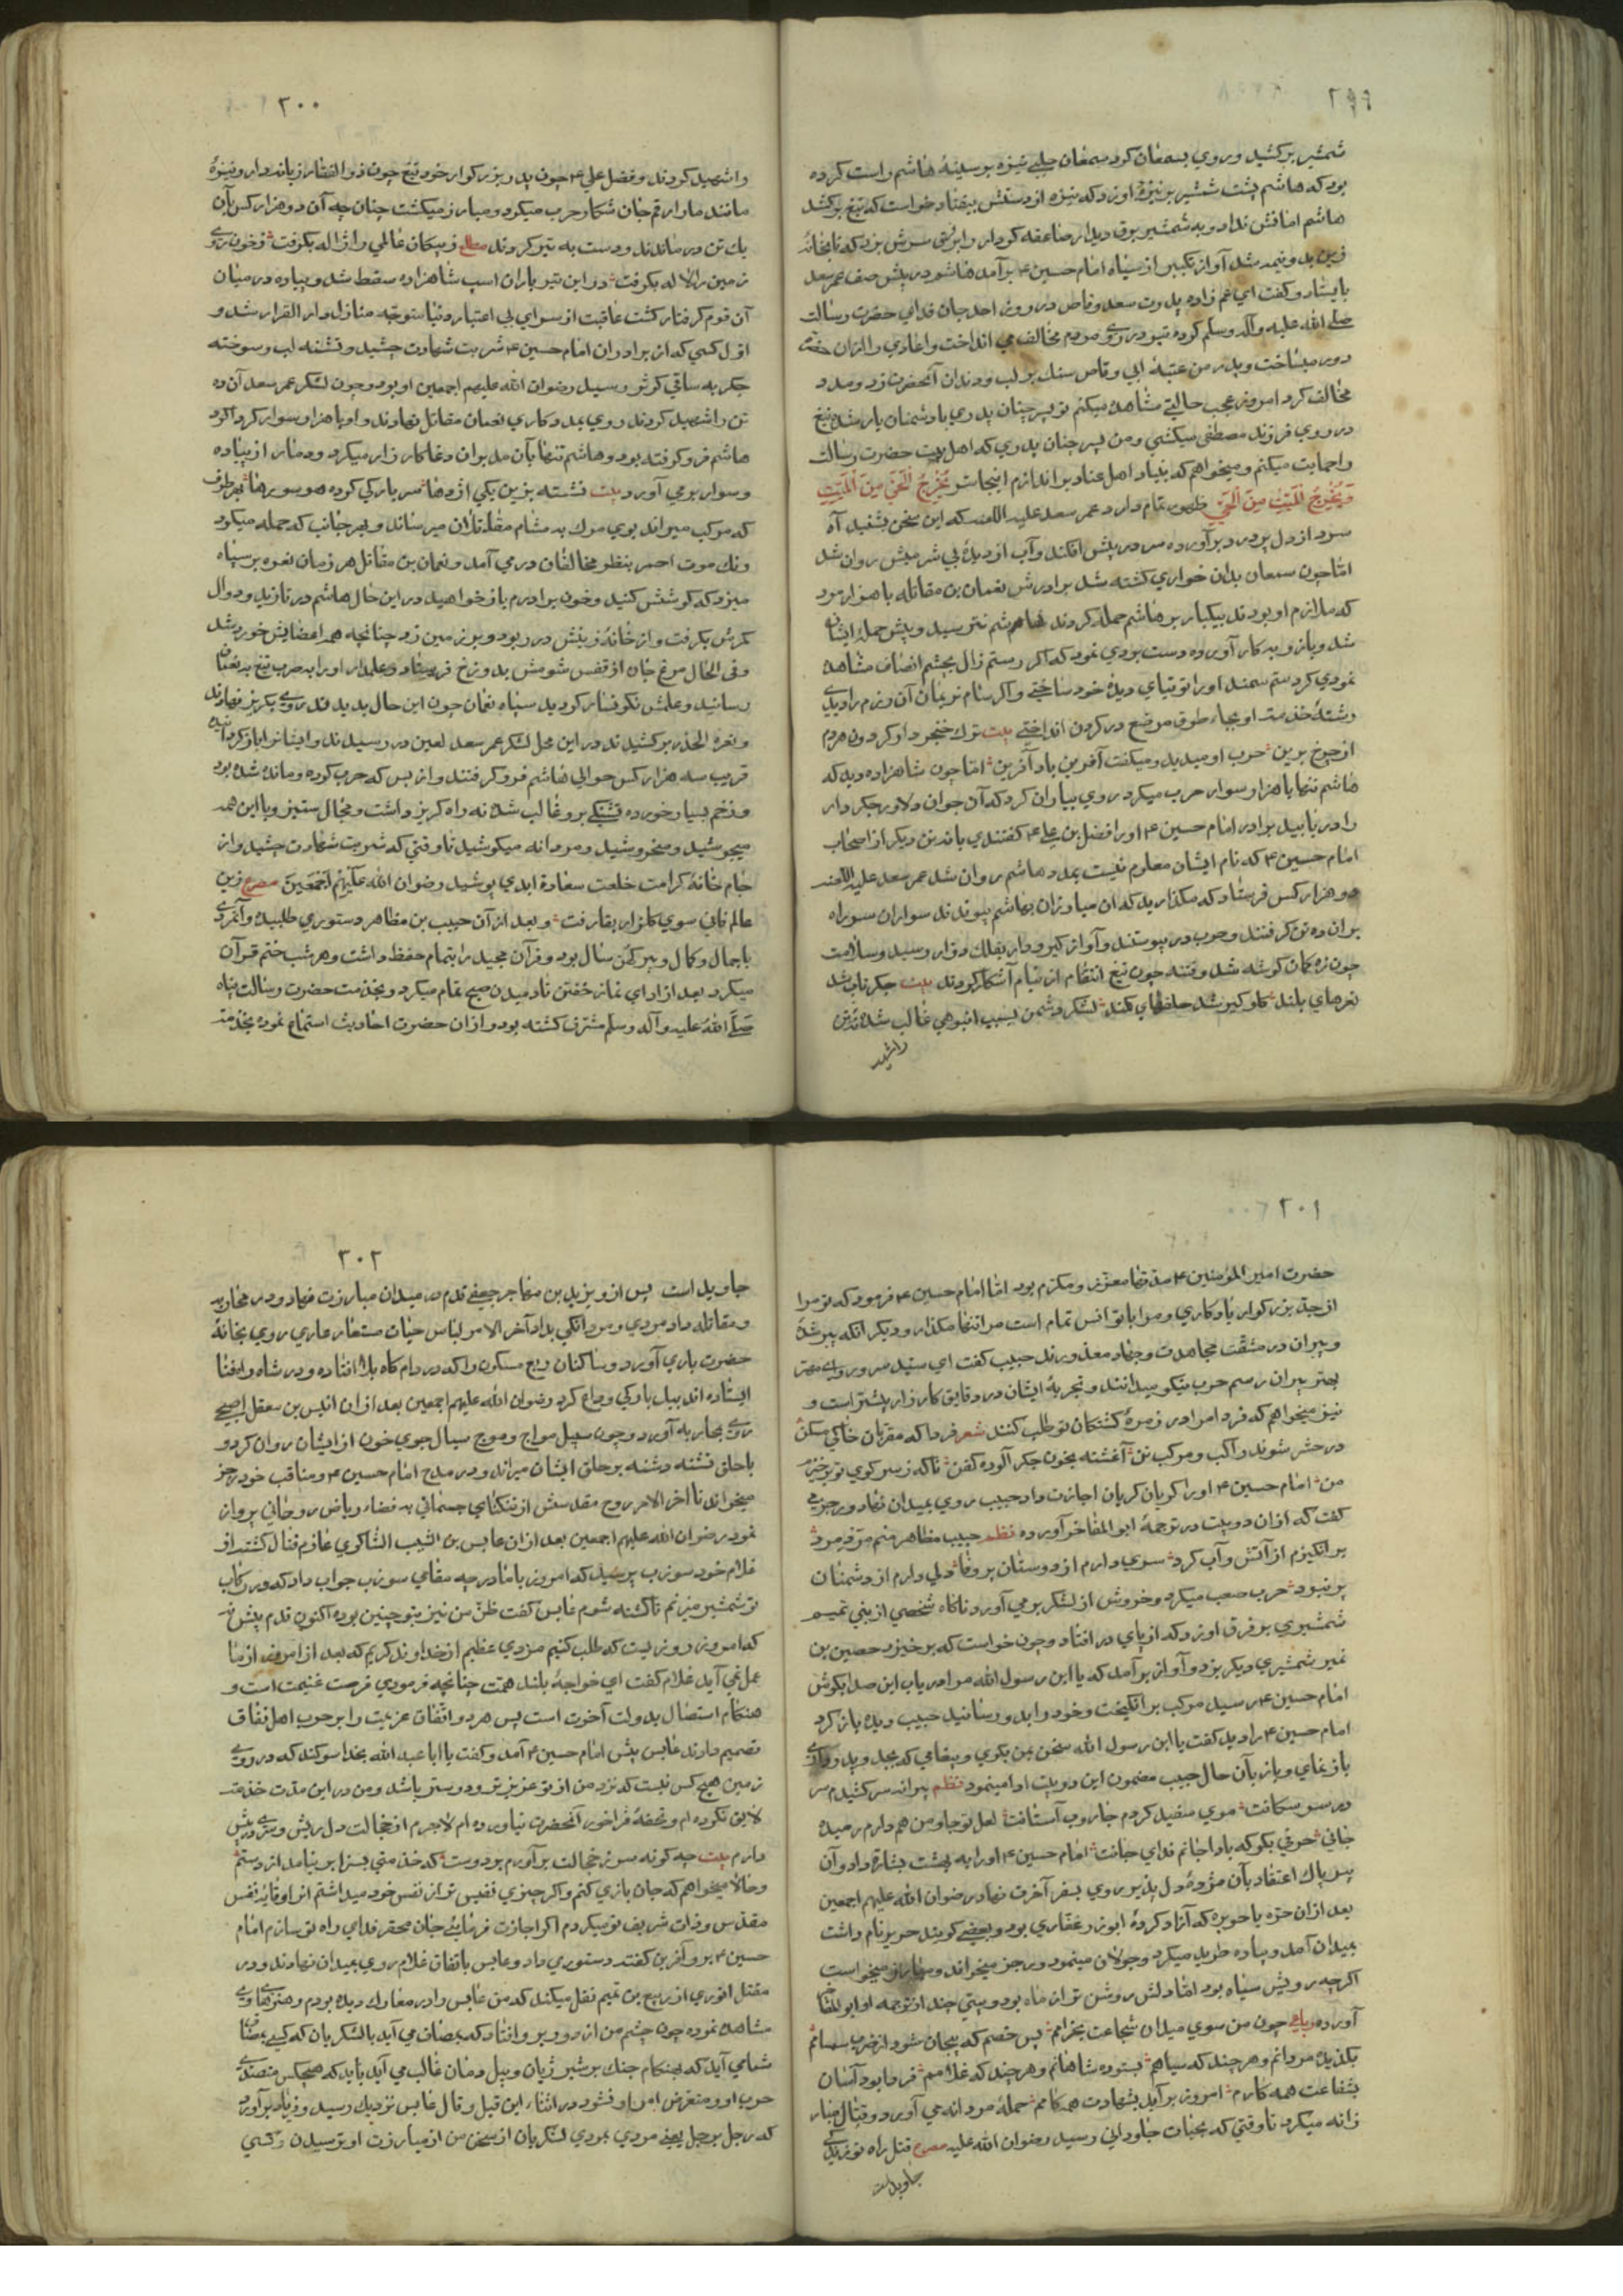 ۲۹۹
شمشیر برکشید و روی بسمعان کرد سمعان حلبی نیزه بر سینهٔ هاشم راست کرده
بود که هاشم پشت شمشیر بر نیزهٔ او زد که نیزه از دستش بیفتاد خواست که تیغ برکشد
هاشم امانش نداد و به شمشیر برق دیدار صاعقه کردار بر سرش بزد که تا بخانهٔ
زین بدونیمه شد آواز تکبیر از سپاه امام حسین ۴ برآمد هاشم در پیش صف عمر سعد
بایستاد و گفت ای عم زاده پدرت سعد وقاص در روز احد جان فدای حضرت رسالت
صلی الله علیه وآله وسلم کرده تیر در روی مردم مخالف می انداخت واعادی را از آن حضرت
دور میساخت و پدر من عتبهٔ ابی وقاص سنک بر لب و دندان آنحضرت زد و مدد
مخالف کرد امروز عجب حالتی مشاهده میکنم تو پسر چنان پدری با دشمنان یار شده تیغ
در روی فرزند مصطفی میکشی و من پسر چنان پدری که اهل بیت حضرت رسالت
را حمایت میکنم و میخواهم که بنیاد اهل عناد براندازم اینجا سر تُخْرِجُ الْحَيَّ مِنَ الْمَيِّتِ
وَتُخْرِجُ الْمَيِّتَ مِنَ الْحَيِّ ظهور تمام دارد عمر سعد علیه اللعنه که این سخن بشنید آه
سرد از دل پر درد برآورده سر در پیش افکند و آب از دیدهٔ بی شرمش روان شد
امّا چون سمعان بدان خواری کشته شد برادرش نعمان بن مقاتله با هزار مرد
که ملازم او بودند بیکبار بر هاشم حمله کردند هاشم نترسید و پیش حملهٔ ایشان
شد و بازو به کار آورده دست بردی نمود که اگر رستم زال بچشم انصاف مشاهده
نمودی گرد سم سمند او را توتیای دیدهٔ خود ساختی و اگر سام نریمان آن رزم را دیدی
رشتهٔ خدمت او بجای طوق مرصع در گردن انداختی بیت ترک خنجر دار گردون هر دم
از چرخ برین حرب او میدید و میگفت آفرین باد آفرین امّا چون شاهزاده دید که
هاشم تنها با هزار سوار حرب میکرد روی بیاران کرد که آن جوان دلاور جکر دار
را در یابید برادر امام حسین ۴ او را فضل بن علی ۴ گفتندی با نه تن دیگر از اصحاب
امام حسین ۴ که نام ایشان معلوم نیست بمدد هاشم روان شد عمر سعد علیه اللعنه
دو هزار کس فرستاد که مگذارید که آن مبارزان بهاشم پیوندند سواران سر راه
بر آن ده تن گرفتند و حرب در پیوستند و آواز گیر و دار بفلک دوار رسید و سلامت
چون زه کمان گوشه شد و فتنه چون تیغ انتقام از نیام آشکار کردند بیت جگر تاب شد
نعرهای بلند گلوگیر شد حلقهای کمند لشگر دشمن بسبب انبوهی غالب شده نه تن
را شهید
۳۰۰
را شهید کردند و فضل علی ۴ چون پدر بزرکوار خود تیغ چون ذوالفقار زباندار و نیزهٔ
مانند مار ارقم جان شکار حرب میکرد و مبارز میکشت چنان چه آن دو هزار کس بآن
یک تن درماندند و دست به تیر کردند مطلع ز پیکان عالمی را ژاله بگرفت ز خون روی
زمین را لاله بگرفت در این تیر باران اسب شاهزاده سقط شد و پیاده در میان
آن قوم گرفتار کشت عاقبت از سرای بی اعتبار دنیا متوجّه منازل دار القرار شد و
اوّل کسی که از برادران امام حسین ۴ شربت شهادت چشید و تشنه لب و سوخته
جکر به ساقی کوثر رسید رضوان الله علیهم اجمعین او بود و چون لشکر عمر سعد آن ده
تن را شهید کردند روی بمددکاری نعمان مقاتل نهادند و او با هزار سوار کرداکرد
هاشم فرو گرفته بود و هاشم تنها بآن مدبران دغا کارزار میکرد و دمار از پیاده
و سوار برمی آورد بیت نشسته بزین یکی اژدها سر بارکی کرده هر سو رها بهر طرف
که مرکب میراند بوی مرک به مشام مقاتلان میرساند و بهر جانب که حمله میکرد
رنک موت احمر بنظر مخالفان در می آمد و نعمان بن مقاتل هر زمان نعره بر سپاه
میزد که کوشش کنید و خون برادرم باز خواهید در این حال هاشم در تازید و دوال
کمرش بگرفت و از خانهٔ زینش در ربود و بر زمین زد چنانچه همه اعضایش خورد شد
و فی الحال مرغ جان از قفس شومش بدوزخ فرستاد و علمدار او را به ضرب تیغ به نعمان
رسانید و علمش نکونسار کردید سپاه نعمان چون این حال بدیدند روی بکریز نهادند
و نعره الحذر برکشیدند در این محل لشکر عمر سعد لعین در رسیدند و ایشانرا باز گردانیده
قریب سه هزار کس حوالی هاشم فرو گرفتند و از بس که حرب کرده و مانده شده بود
و زخم بسیار خورده تشنگی برو غالب شد نه راه کریز داشت و مجال ستیز و با این همه
میجوشید و میخروشید و مردانه میکوشید تا وقتی که شربت شهادت چشید و از
جام خانهٔ کرامت خلعت سعادة ابدی پوشید رضوان الله علیهم اجمعین مصرع زین
عالم فانی سوی کلزار بقا رفت و بعد از آن حبیب بن مظاهر دستوری طلبیده وآنمردی
باجمال و کمال و پیر کهن سال بود و قرآن مجید را بتمام حفظ داشت و هر شب ختم قرآن
میکرد بعد از ادای نماز خفتن تا دمیدن صبح تمام میکرد و بخدمت حضرت رسالت پناه
صَلَّی اللهُ علیه وآله وسلّم مشرف کشته بود و از آن حضرت احادیث استماع نموده بخدمت
۳۰۱
حضرت امیر المؤمنین ۴ مدتها معزّز و مکرّم بود امّا امام حسین ۴ فرمود که تو مرا
از جدّ بزرکوار یادکاری و مرا با تو انس تمام است مرا تنها مکذار و دیگر انکه پیر شدهٔ
و پیران در مشقّت مجاهدت و جهاد معذورند حبیب کفت ای سیّد سرور و ای مهتر
بهتر پیران رسم حرب نیکو میدانند و تجربهٔ ایشان در دقایق کارزار بیشتر است و
نیز میخواهم که فردا مرا در زمرهٔ کشتکان تو طلب کنند شعر فردا که مقربان خاکی مسکن
در حشر شوند راکب و مرکب تن آغشته بخون جکر آلوده کفن تا که ز سر کوی تو برخیزم
من امام حسین ۴ او را گویان گریان اجازت داد حبیب روی بمیدان نهاد و رجزی
گفت که از آن دو بیت در ترجمهٔ ابو المفاخر آورده نظم حبیب مظاهر منم مرد فرمود
برانگیزم از آتش و آب کرد سری دارم از دوستان پر وفا دلی دارم از دشمنان
پر نبرد حرب صعب میکرد و خروش از لشکر برمی آورد ناگاه شخصی از بنی تمیم
شمشیری بر فرق او زد که از پای در افتاد و چون خواست که برخیزد حصین بن
نمیر شمشیری دیگر بزد و آواز برآمد که یا ابن رسول الله مرا دریاب این صدا بگوش
امام حسین ۴ رسید مرکب برانگیخت و خود را بدو رسانید حبیب دیده باز کرد
امام حسین ۴ را دید کفت یا ابن رسول الله سخن بمن بگوی و پیغامی که بجدّ و پدر داری
باز نمای و باز بآن حال حبیب مضمون این دو بیت ادا مینمود نظم پیرانه سر کشیدم سر
در سر سکانت موی سفید کردم جاروب آستانت لعل تو جاو من هم دارم رمیده
جانی حرفی بگو که بادا جانم فدای جانت امام حسین ۴ او را به بهشت بشارة داد و آن
پیر پاک اعتقاد بآن مژدهٔ دل پذیر روی بسفر آخرت نهاد رضوان الله علیهم اجمعین
بعد از آن حرّه یا حویره که آزاد کردهٔ ابوذر غفاری بود و بعضی گویند حریر نام داشت
بمیدان آمد و پیاده طرید میکرد و جولان مینمود و رجز میخواند و مبارز میخواست
اگرچه رویش سیاه بود امّا دلش روشن تر از ماه بود و بیتی چند از ترجمه او ابو المفاخر
آورده رباعی چون من سوی میدان شجاعت بخرامم بس خصم که بیجان شود از ضرب سهامم
یکدیدهٔ مردانم و هر چند که سیاهم بستوده شاهانم و هر چند که غلامم فردا بود آسان
بشفاعت همه کارم امروز برآید بشهادت همه کامم حملهٔ مردانه می آورد و قتال مبار
زانه میکرد تا وقتی که بحیات جاودانی رسید رضوان الله علیه مصرع قتل راه تو زندگی
جاوید است
۳۰۲
جاوید است پس از و یزید بن مهاجر جعفی قدم در میدان مبارزت نهاد و در محاربه
و مقاتله داد مردی و مردانگی بداد آخر الامر لباس حیات مستعار عاری روی بخانهٔ
حضرت باری آورد و ساکنان ربع مسکون را که در دام کاه بلا افتاده و در شاه راه فنا
ایستاده اند بیل بارکی وداع کرد رضوان الله علیهم اجمعین بعد از آن انیس بن معقل اصبحی
روی بمحاربه آورد و چون سیل مواج و موج سیال جوی خون از ایشان روان کرد و
با حلق تشنه دشنه بر حلق ایشان میراند و در مدح امام حسین ۴ و مناقب خود رجز
میخواند تا آخر الامر روح مقدسش از تنکنای جسمانی به فضاء ریاض روحانی پرواز
نمود رضوان الله علیهم اجمعین بعد از آن عابس بن الشبیب الشاکری عازم قتال کشته از
غلام خود سوزب پرسید که امروز با ما در چه مقامی سوزب جواب داد که در رکاب
تو شمشیر میزنم تا کشته شوم عابس کفت ظنّ من نیز بتو چنین بوده اکنون قدم پیش نه
که امروز روزیست که طلب کنیم مزدی عظیم از خداوند کریم که بعد از امروز از ما
عمل نمی آید غلام کفت ای خواجهٔ بلند همّت چنانچه فرمودی فرصت غنیمت است و
هنکام استصال بدولت آخرت است پس هر دو اتّفاق عزیمت را بر حرب اهل نفاق
تصمیم دادند عابس پیش امام حسین ۴ آمد و کفت یا ابا عبد الله بخدا سوکند که در روی
زمین هیچ کس نیست که نزد من از تو عزیز تر و دوستر باشد و من در این مدّت خدمت
لایق نکرده ام و تحفهٔ فراخور آنحضرت نیاورده ام لاجرم از خجالت دل ریش و سر در پیش
دارم بیت چه کونه سر ز خجالت برآورم بر دوست که خدمتی بسزا بر نیامد از دستم
و حالا میخواهم که جان بازی کنم و اگر چیزی نفیس تر از نفس خود میداشتم آنرا وقایهٔ نفس
مقدّس و ذات شریف تو میکردم اگر اجازت فرمایی جان محقر فدای راه تو سازم امام
حسین ۴ برو آفرین کفته دستوری داد و عابس باتفاق غلام روی بمیدان نهادند و در
مقتل انوری از ربیع بن تمیم نقل میکند که من عابس را در معارک دیده بودم و هنرهای وی
مشاهده نموده چون چشم من از دور برو افتاد که بمصاف می آید با لشکریان که کسی بمصاف
شما می آید که بهنکام جنک بر شیر ژیان و پیل دمان غالب می آید باید که هیچکس متصدی
حرب او و متعرض امر او نشود در اثناء این قیل و قال عابس نزدیک رسید و فریاد برآورد
که رجل برجل یعنی مردی بمردی لشکریان از سخن من از مبارزت او ترسیدن و کسی